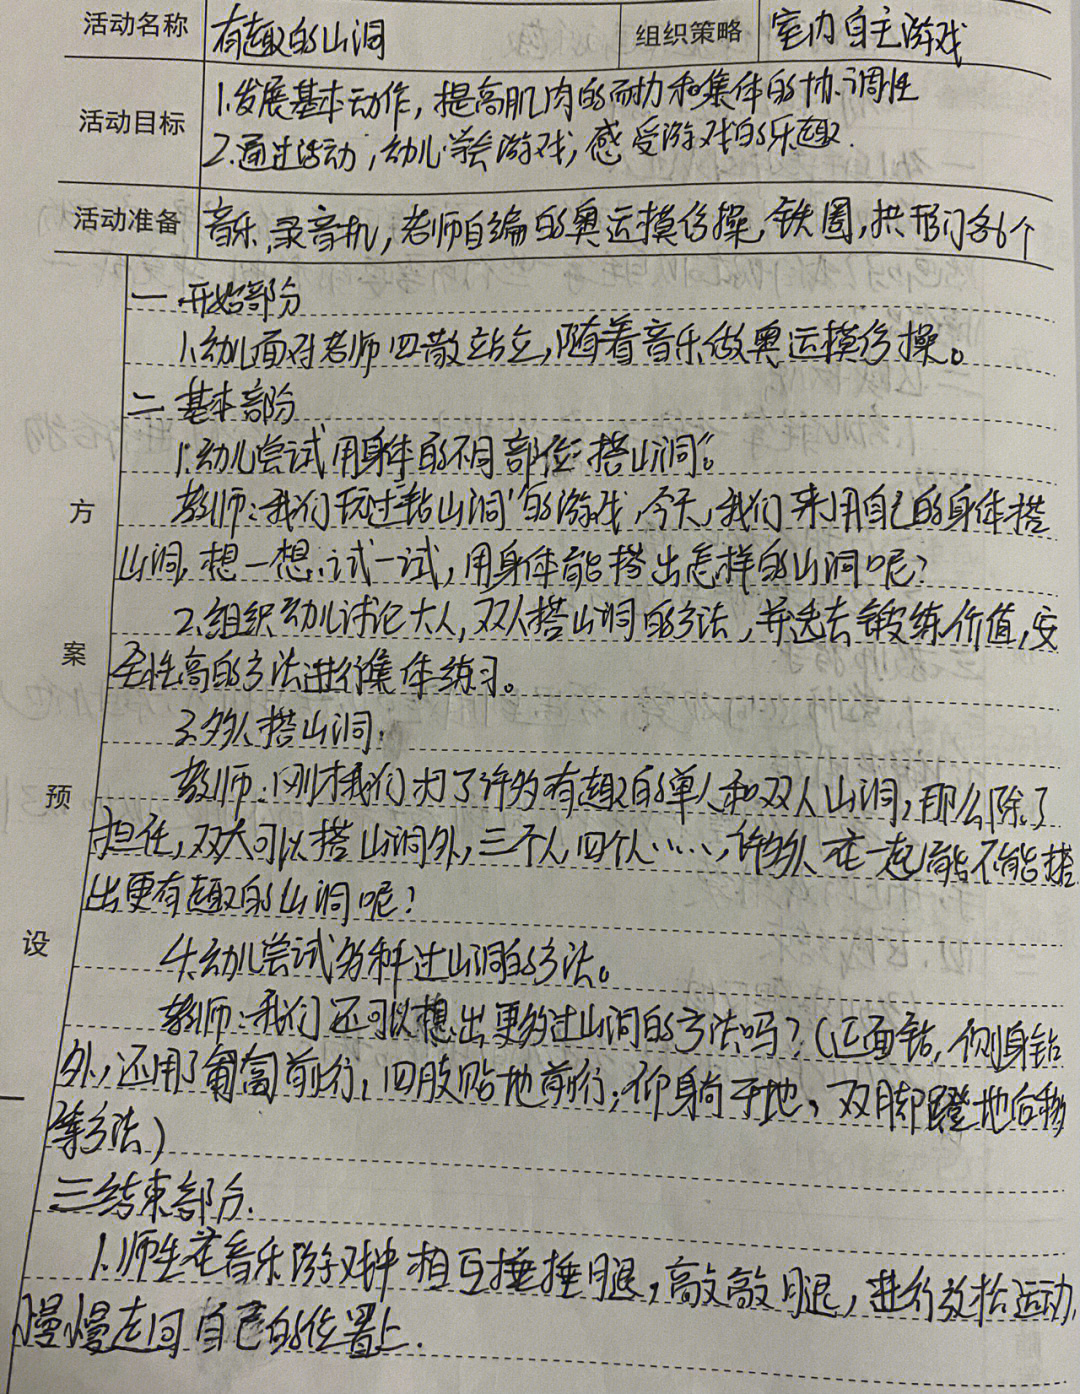 活动名称 有趣的山洞 组织策略 室内自主游戏
活动目标 1.发展基本动作，提高肌肉的耐力和集体的协调性
2.通过活动，幼儿学会游戏，感受游戏的乐趣.
活动准备 音乐,录音机，老师自编的奥运模仿操，铁圈，拱形门各6个
方案预设
一.开始部分
1.幼儿面对老师四散站立，随着音乐做奥运模仿操。
二 基本部分
1.幼儿尝试用身体的不同部位"搭山洞"。
教师：我们玩过"钻山洞"的游戏，今天，我们来用自己的身体搭
山洞，想一想，试一试，用身体能搭出怎样的山洞呢？
2.组织幼儿讨论大人，双人搭山洞的方法，并选去锻练价值，安
全性高的方法进行集体练习。
3.多人搭山洞.
教师：刚才我们 了许多有趣的单人和双人山洞，那么除了
担任，双大可以搭山洞外，三个人，四个人……，许多人在一起能不能搭
出更有趣的山洞呢？
4.幼儿尝试多种过山洞的方法。
教师：我们还可以想出更多过山洞的方法吗？（正面钻，侧身钻
外，还用了匍匐前行，四肢贴地前行；仰身躺于地，双脚蹬地后移
等方法）
三结束部分.
1.师生在音乐游戏中相互捶捶腿，敲敲腿，进行放松运动，
慢慢走回自己的位置上.